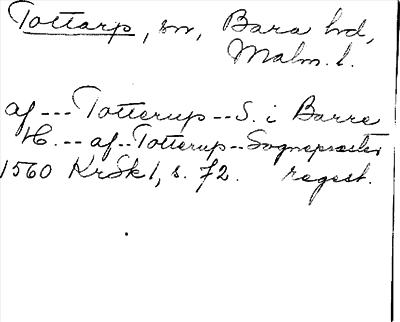 Tottarp, sn, Bara hd,
Malm. l.
af --- Totterup -- S. i Barre
H. -- af -- Totterup -- Sognepræster
1560 KrSk 1, s. 72. regest.